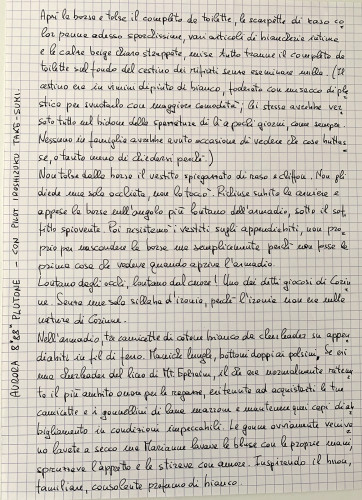 Aprì la borsa e tolse il completo da toilette, le scarpette di raso co-
lor panna adesso sporchissime, vari articoli di biancheria intima
e le calze beige chiaro strappate, mise tutto tranne il completo da
toilette sul fondo del cestino dei rifiuti senza esaminare nulla. (Il
cestino era in vimini dipinto di bianco, foderato con un sacco di pla-
stica per svuotarlo con maggiore comodità; lei stessa avrebbe ver-
sato tutto nel bidone della spazzatura di lì a pochi giorni, come sempre.
Nessuno in famiglia avrebbe avuto occasione di vedere che cosa buttas-
se, o tanto meno di chiedersi perché.)
Non tolse dalla borsa il vestito spiegazzato di raso e chiffon. Non gli
diede una sola occhiata, non lo toccò. Richiuse subito la cerniera e
appese la borsa nell'angolo più lontano dell'armadio, sotto il sof-
fitto spiovente. Poi risistemò i vestiti sugli appendiabiti, non pro-
prio per nascondere la borsa ma semplicemente perché non fosse la
prima cosa che vedeva quando apriva l'armadio.
Lontano dagli occhi, lontano dal cuore! Uno dei detti giocosi di Corin-
ne. Senza una sola sillaba d'ironia, perché l'ironia non era nella
natura di Corinne.
Nell'armadio, tre camicette di cotone bianco da cheerleader su appen-
diabiti in fil di ferro. Maniche lunghe, bottoni doppi ai polsini. Se eri
una cheerleader del liceo di Mt. Ephraim, il che era normalmente ritenu-
to il più ambito onore per le ragazze, eri tenuta ad acquistarti le tue
camicette e i gonnellini di lana marrone e mantenere quei capi di ab-
bigliamento in condizioni impeccabili. Le gonne ovviamente veniva-
no lavate a secco ma Marianne lavava le bluse con le proprie mani,
spruzzava l'appretto e le stirava con amore. Inspirando il buon,
familiare, consolante profumo di bianco.
AURORA 8° "88" PLUTONE - CON PILOT IROSHIZUKU TAKE-SUMI.